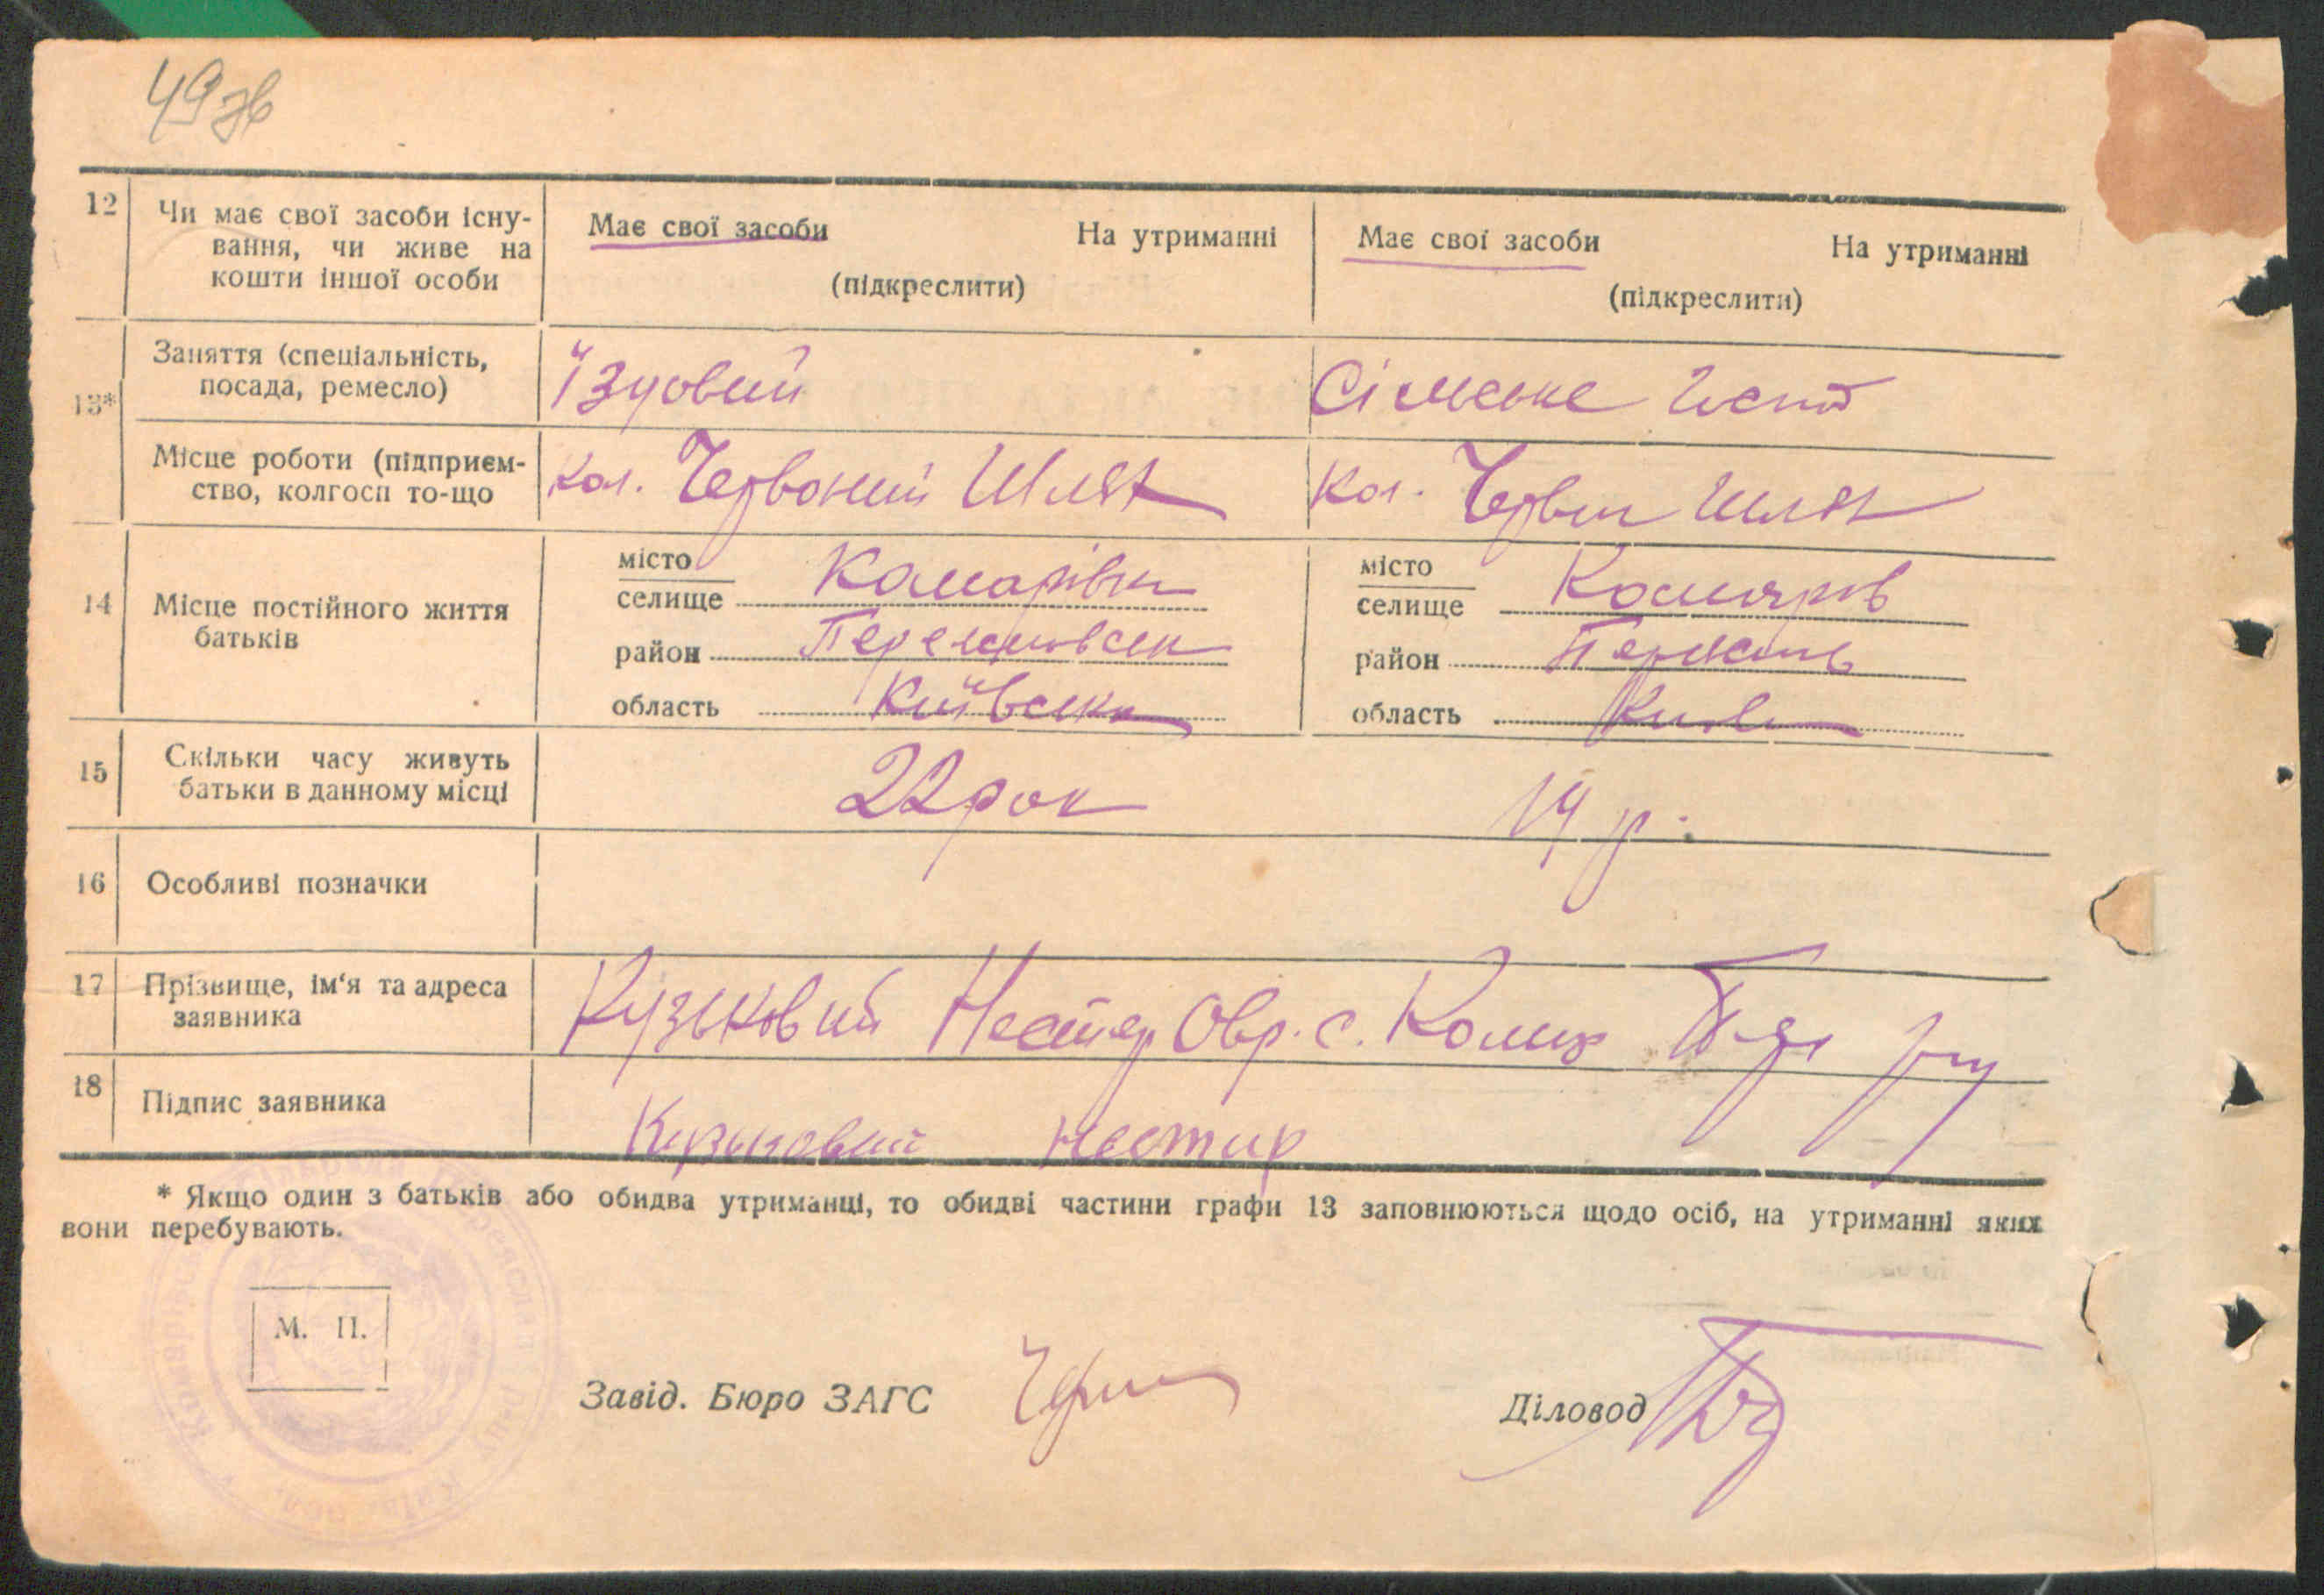 49зв
12 Чи має свої засоби існу-
вання, чи живе на
кошти іншої особи
Має свої засоби На утриманні
(підкреслити)
Має свої засоби На утриманні
(підкреслити)
13*
Заняття (спеціальність,
посада, ремесло)
Їздовий
Сільське
Місце роботи (підприєм-
ство, колгосп то-що
Кол. Червоний Шлях
Кол. Червон Шлях
14 Місце постійного життя
батьків
місто
селище Камарівка
район
область Київська
місто
селище Комарів
район
область
15 Скільки часу живуть
батьки в данному місці
22 рок
19 р.
16 Особливі позначки
17 Прізвище, ім'я та адреса
заявника
Кузьковий Нестер с.
18 Підпис заявника
Кузьковий Нестир
* Якщо один з батьків або обидва утриманці, то обидві частини графи 13 заповнюються щодо осіб, на утриманні яких
вони перебувають.
М. П.
Завід. Бюро ЗАГС
Діловод